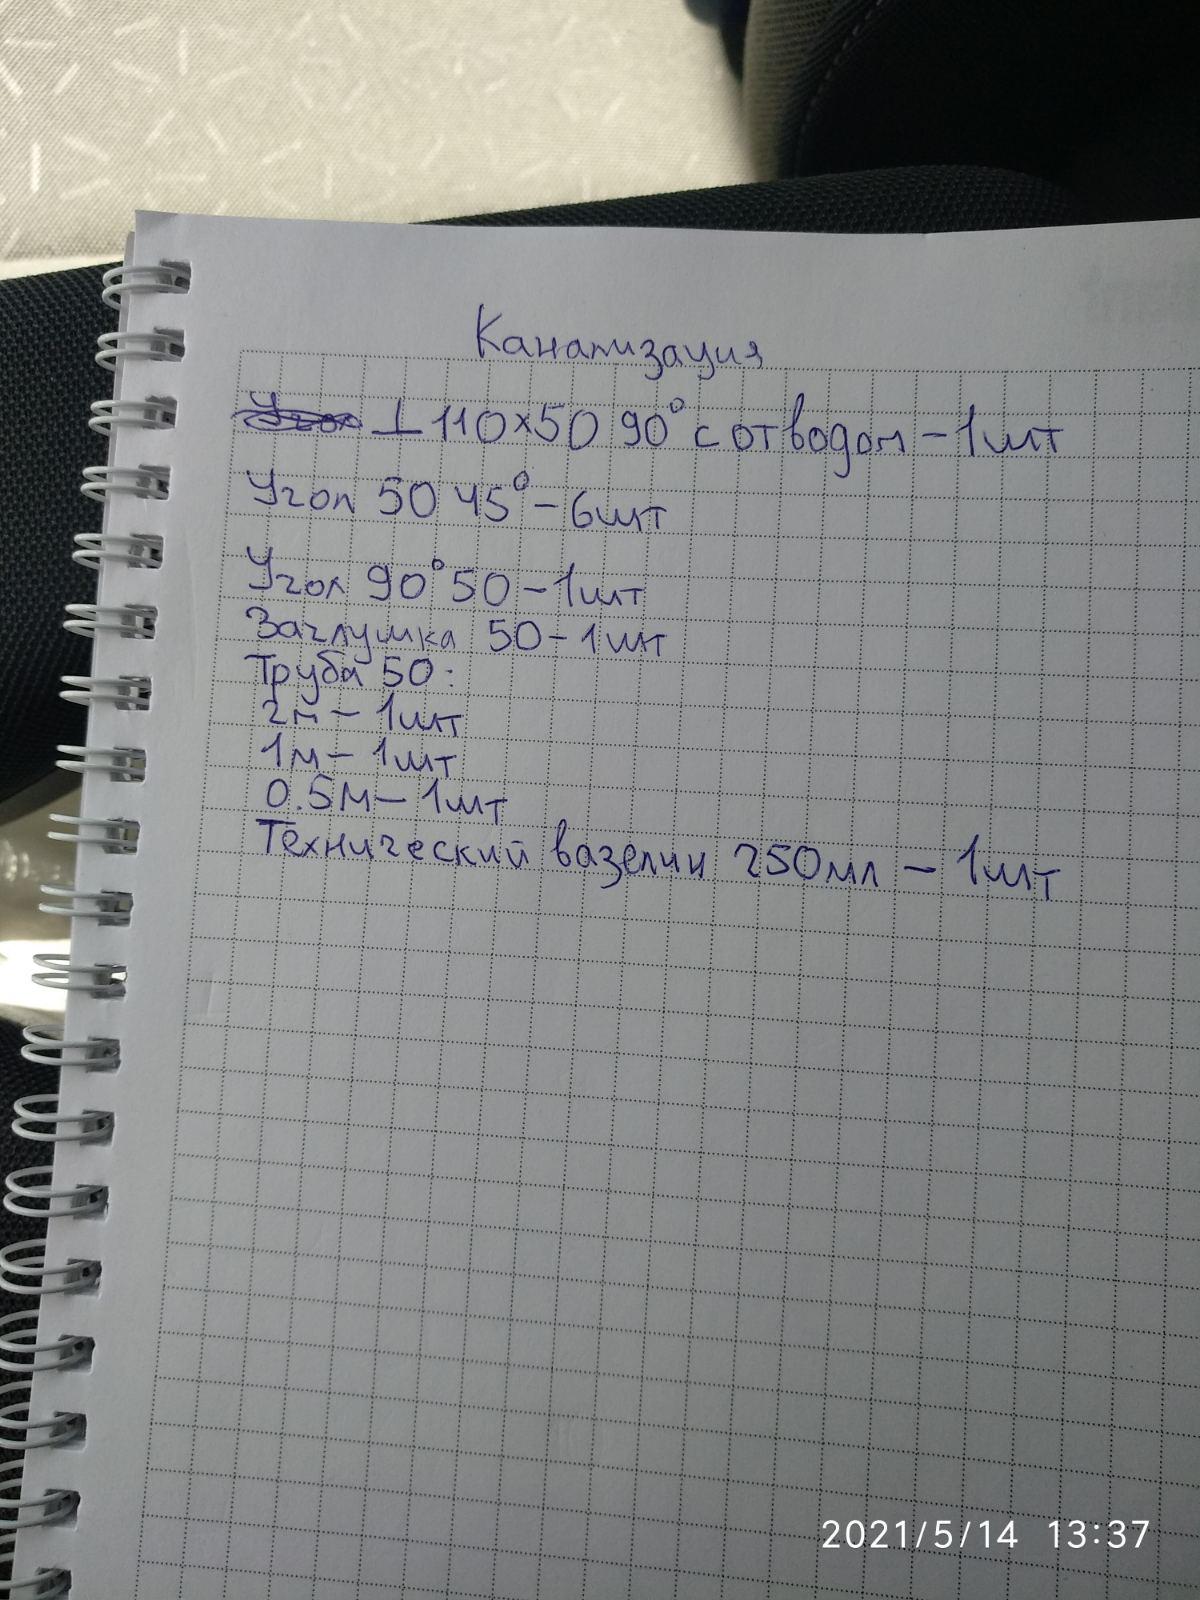 Канализация
⊥ 110x50 90° с отводом - 1шт
Угол 50 45° - 6шт
Угол 90° 50 - 1шт
Заглушка 50 - 1шт
Труба 50:
2м - 1шт
1м - 1шт
0.5м - 1шт
Технический вазелин 250мл - 1шт
2021/5/14 13:37